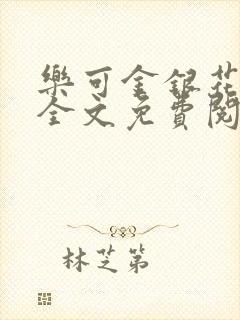 樂可金銀花
全文免費閱
林芝第